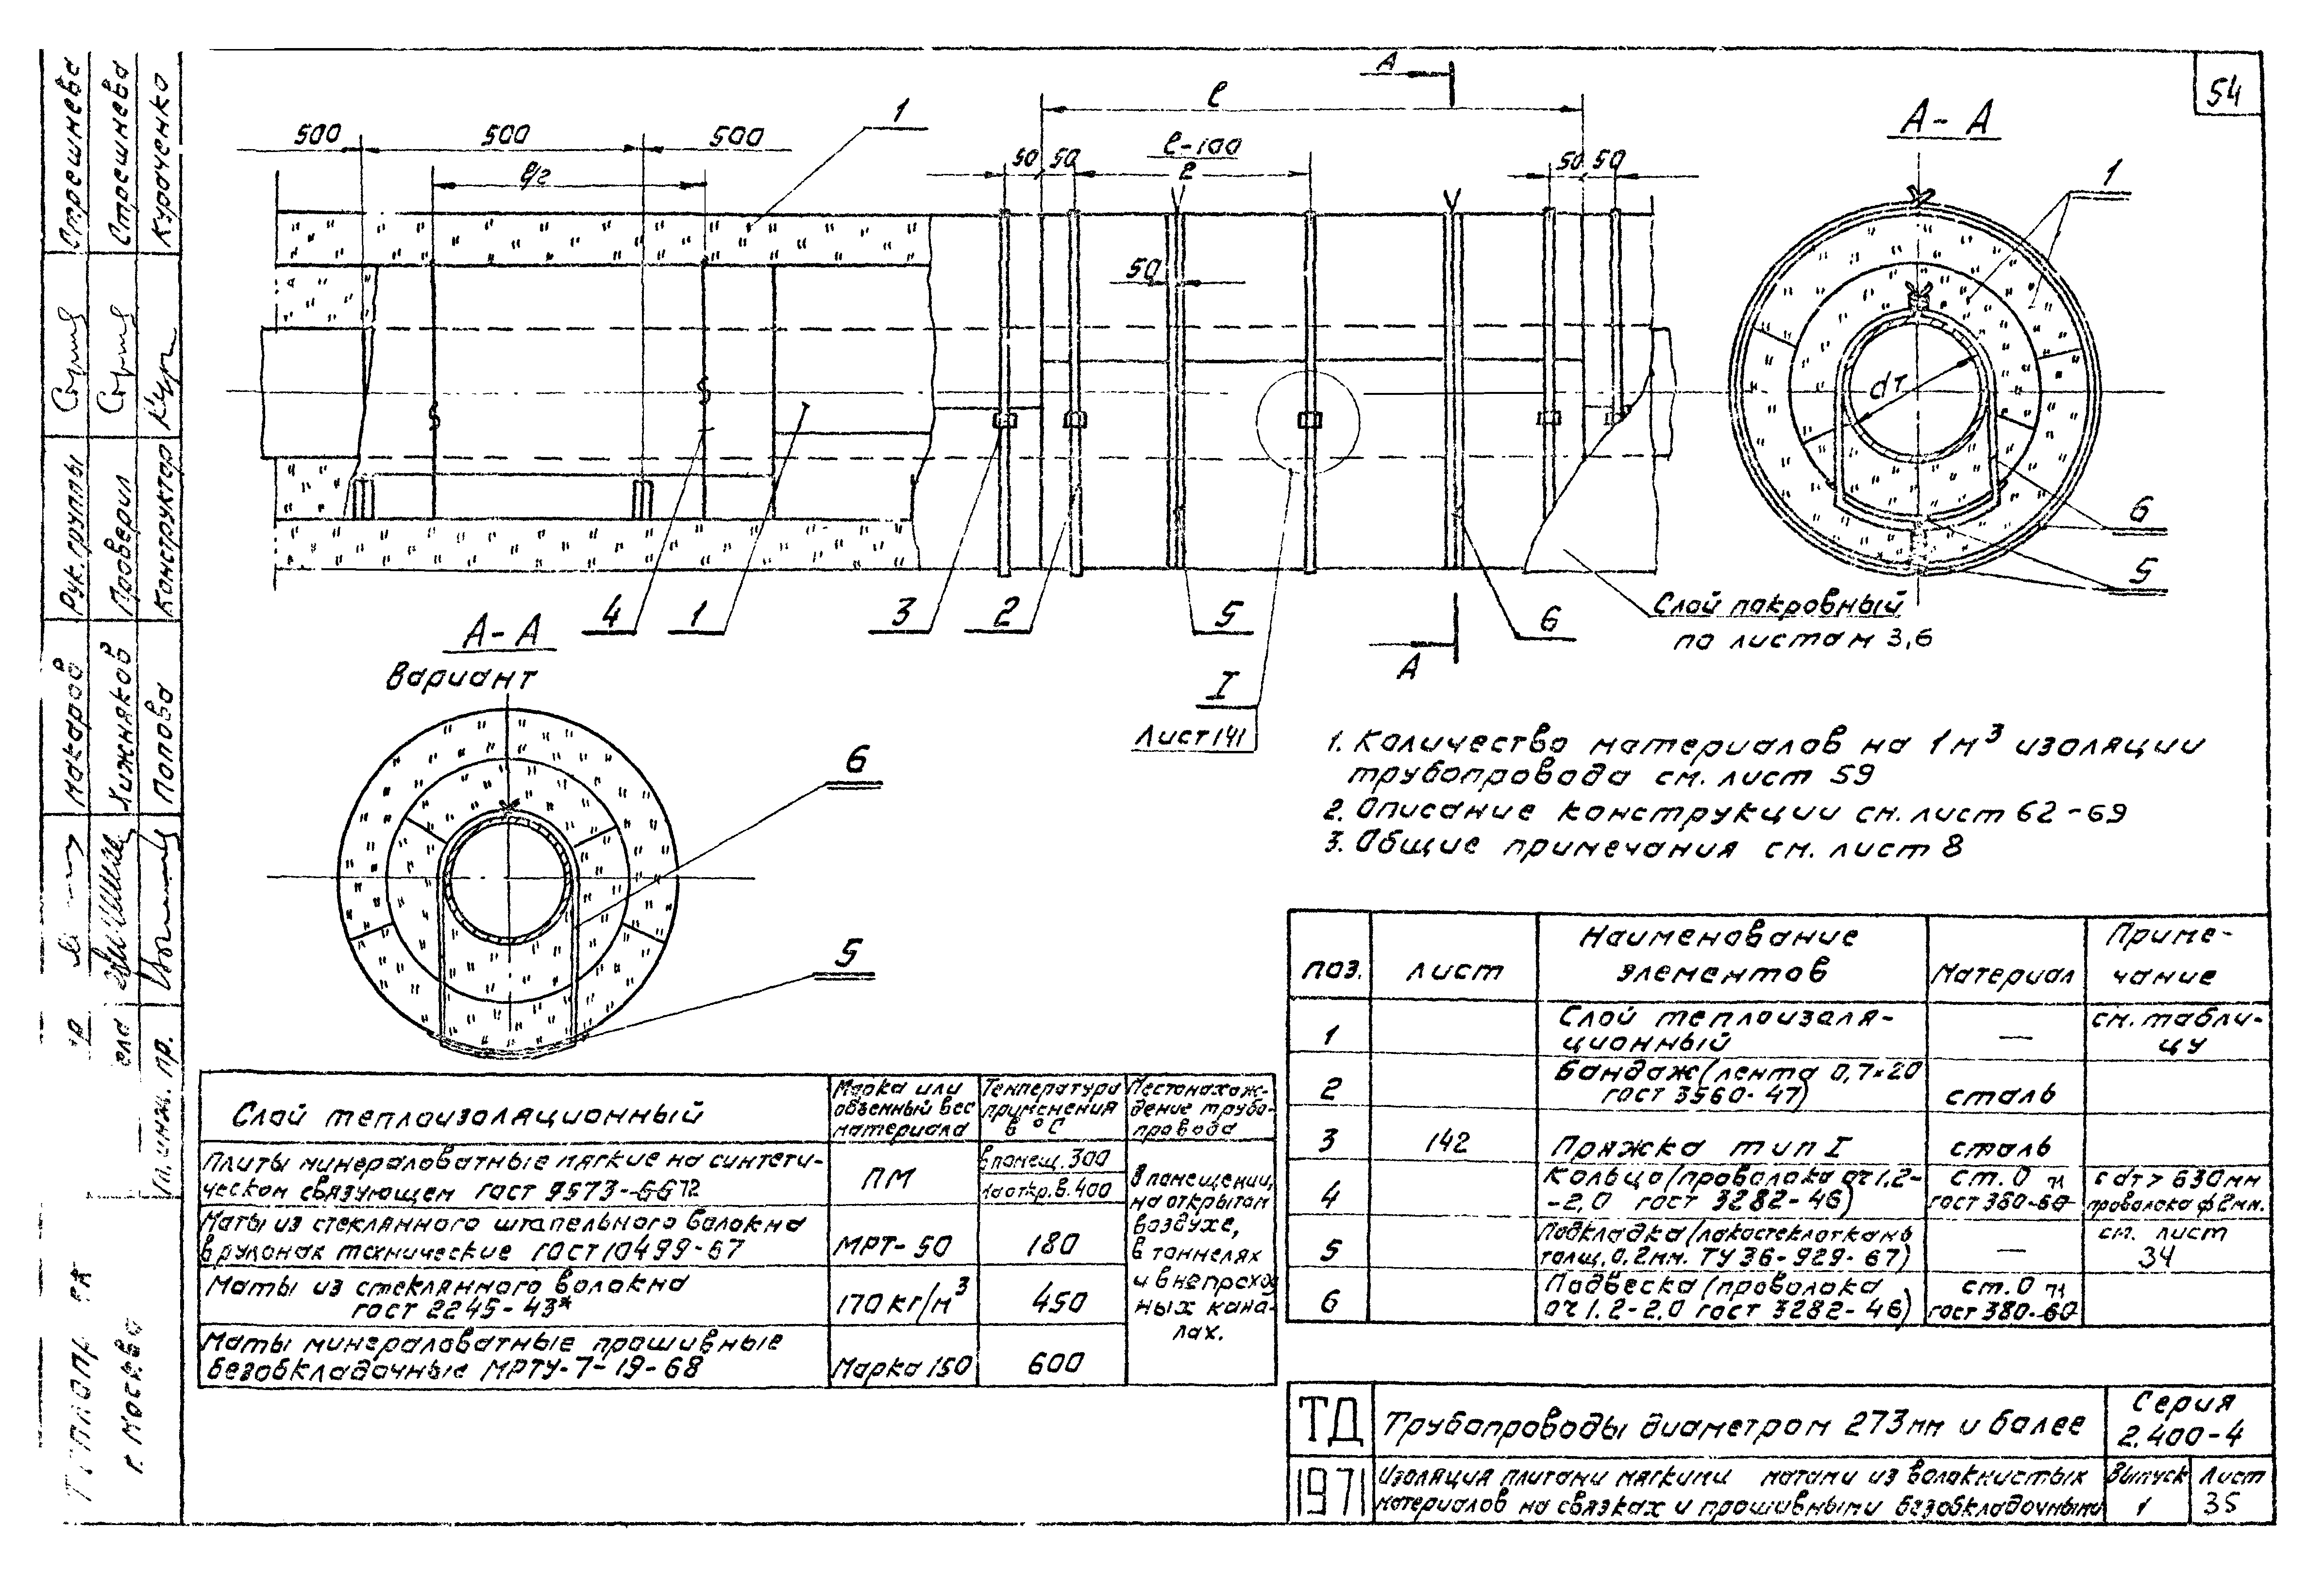 54
500
500
500
ℓ/2
1
ℓ
ℓ-100
2
50
50
50
50
50
А
А
А - А
1
dт
6
5
4
1
3
2
5
6
I
Лист 141
Слой покровный
по листам 3,6
А - А
Вариант
6
5
1. Количество материалов на 1м³ изоляции
трубопровода см. лист 59
2. Описание конструкции см. лист 62-69
3. Общие примечания см. лист 8
поз.
лист
Наименование
элементов
Материал
Приме-
чание
1
Слой теплоизоля-
ционный
—
см. табли-
цу
2
Бандаж (лента 0,7×20
гост 3560-47)
сталь
3
142
Пряжка тип I
сталь
4
Кольцо (проволока оч 1,2-
-2,0 гост 3282-46)
ст. 0
гост 380-60
с dт > 630мм
проволока ф2мм.
5
Подкладка (лакостеклоткань
толщ. 0,2мм. ТУ 36-929-67)
—
см. лист
34
6
Подвеска (проволока
оч 1.2-2.0 гост 3282-46)
ст. 0
гост 380-60
Слой теплоизоляционный
Марка или
объемный вес
материала
Температура
применения
в °С
Местонахож-
дение трубо-
провода
Плиты минераловатные мягкие на синтети-
ческом связующем гост 9573-6672
ПМ
в помещ. 300
на откр. в. 400
В помещении,
на открытом
воздухе,
в тоннелях
и в непроход
ных кана-
лах.
Маты из стеклянного штапельного волокна
в рулонах технические гост 10499-67
МРТ-50
180
Маты из стеклянного волокна
гост 2245-43*
170 кг/м³
450
Маты минераловатные прошивные
безобкладочные МРТУ-7-19-68
Марка 150
600
ТД
1971
Трубопроводы диаметром 273мм и более
Серия
2.400-4
Изоляция плитами мягкими матами из волокнистых
материалов на связках и прошивными безобкладочными
Выпуск
1
Лист
35
Стрешнева
Стрешнева
Кураченко
Рук. группы
Проверил
Конструктор
Макаров
Хижняков
Попова
Гл. инж. пр.
г. Москва